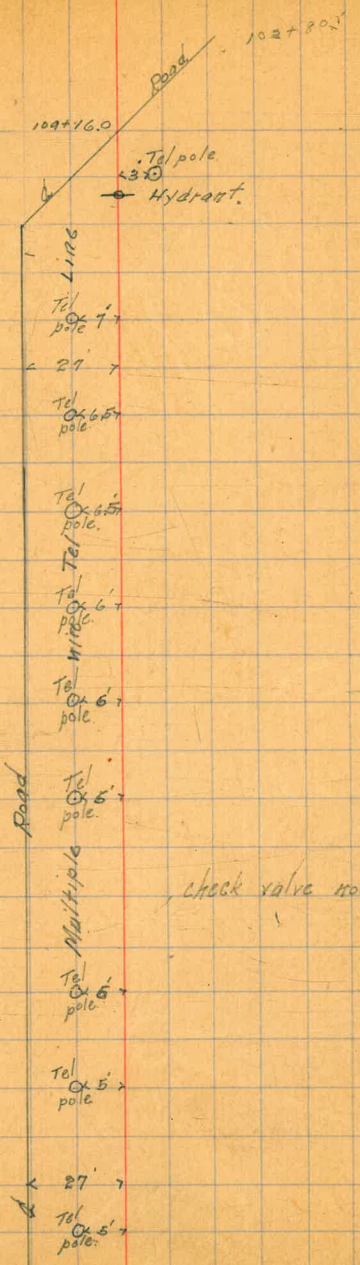 102+80.5
Road
109+76.0
Tel pole.
3'
Hydrant.
℄
Line
Tel
pole 7'
27'
Tel
pole. 6.5'
Tel
pole. 6.5'
Tel
Tel
pole 6'
wire
Tel
pole. 5'
Road
Tel
pole. 5'
Multiple
check valve no
Tel
pole 5'
Tel
pole 5'
27'
℄
Tel
pole. 5'